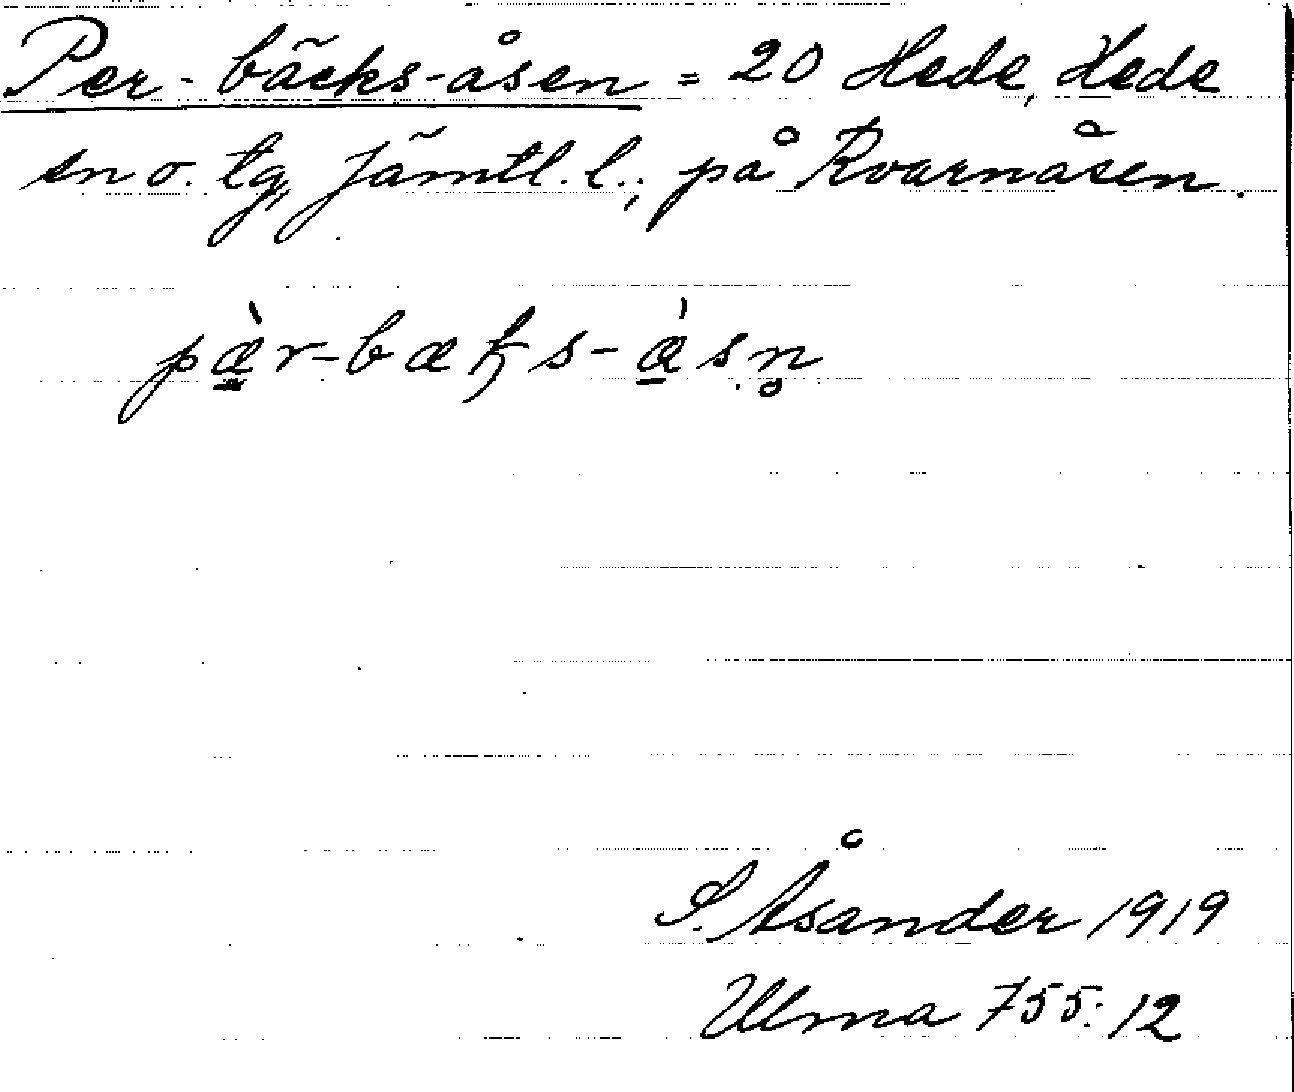 Per-bäcks-åsen = 20 Hede, Hede
sn o. tg, Jämtl. l.; på Kvarnåsen.
pæ̀r-bæƙs-å̀sn̥
S. Åsander 1919
Ulma 755:12